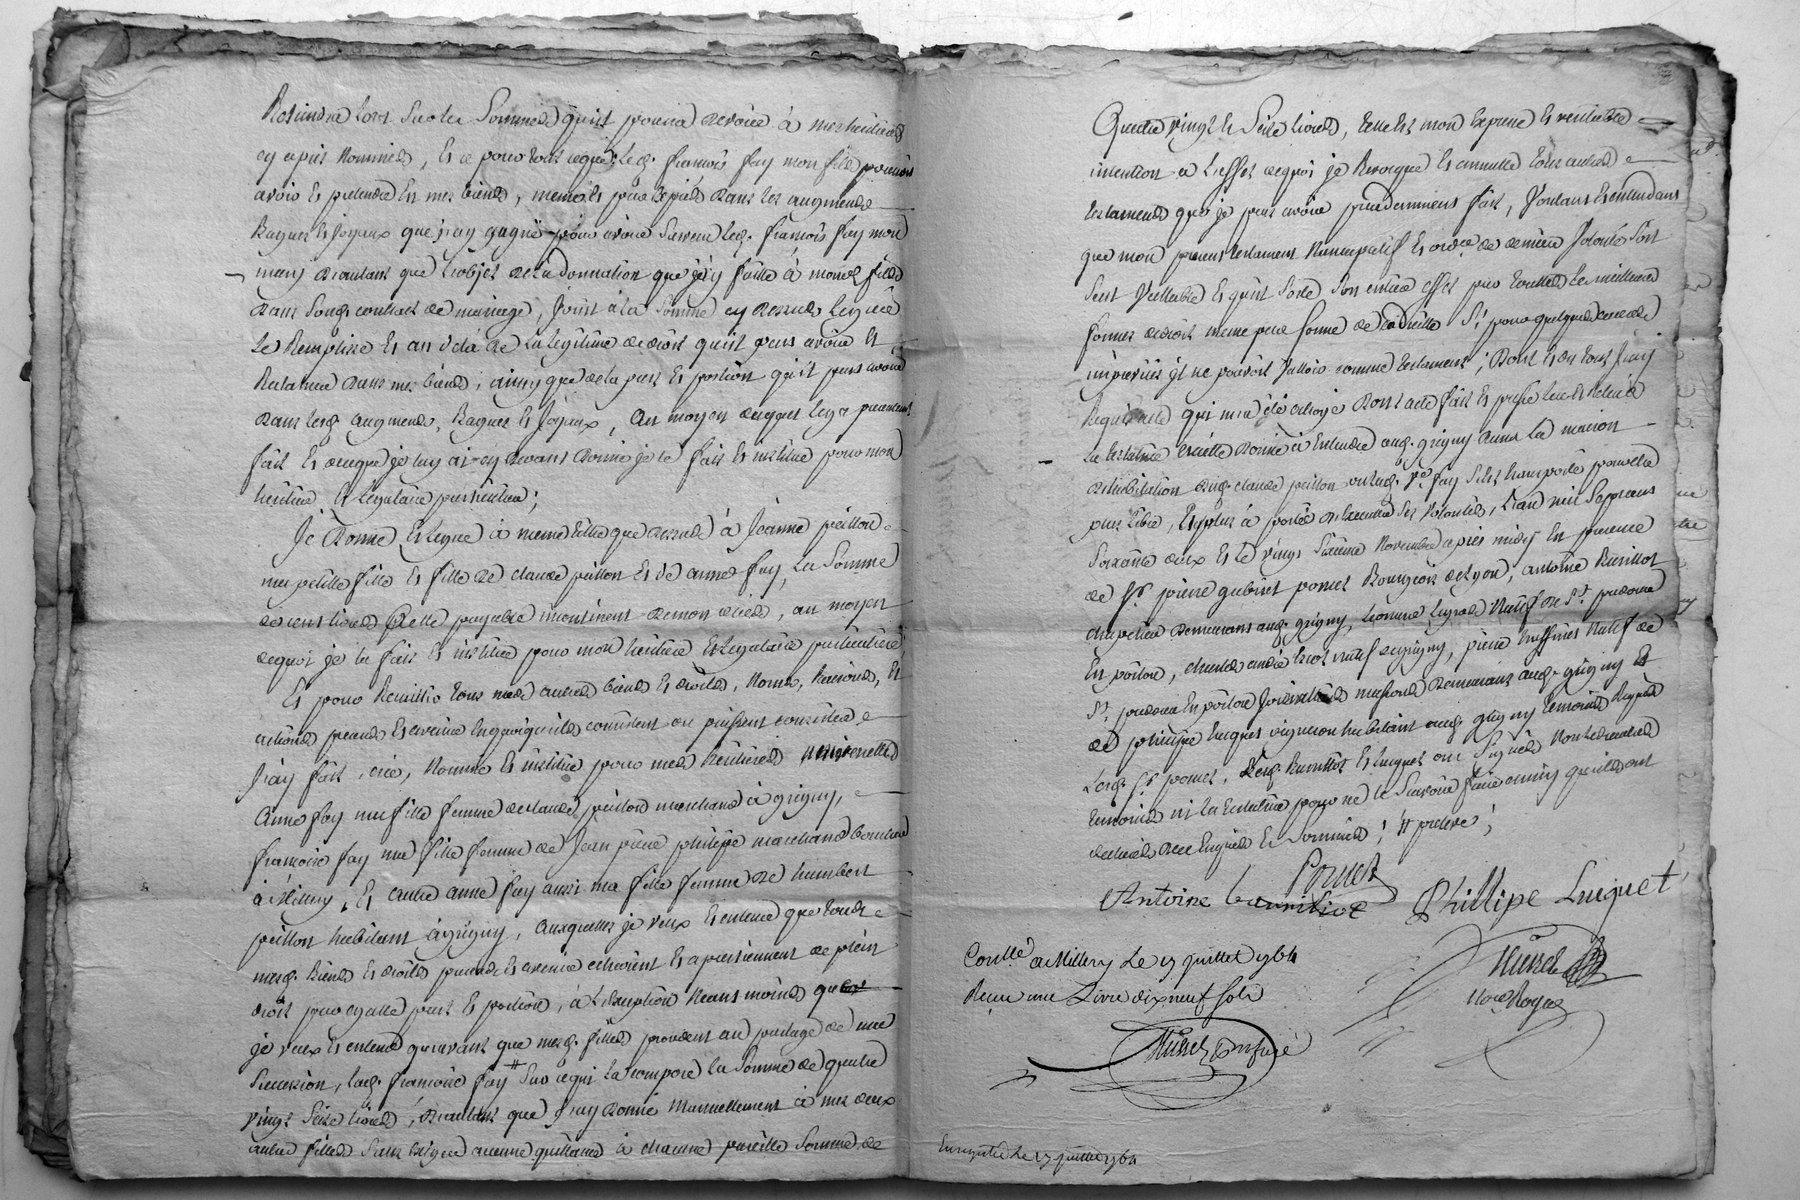 Retiendra lors sur les sommes qu'il pourra devoir à mes heritiers
cy apres nommées, et ce pour tout ce que led. francois fay mon fils pourroit
avoir et pretendre en mes biens, meme et pour sa part dans les augments
Bagues et joyaux que j'ay gagné pour avoir survecu led. francois fay mon
mary d'autant que l'objet de la donnation que j'ay faitte à mond. fils
dans sond. contract de mariage, joint à la somme cy dessus leguée
le remplisse et au delà de la légitime de droit qu'il peut avoir et
pretendre dans mes biens, ainsy que de la part et portion qu'il peut avoir
dans lesd. augments, Bagues et Joyaux, au moyen duquel legs presentement
fait et de ce que je luy ai cy devant donné je le fait et institue pour mon
héritier et legataire particulier;
Je donne et legue à meme titre que dessus à Jeanne peillon
ma petitte fille et fille de claude peillon et de anne fay, la somme
de cent livres payable incontinent de mon décès, au moyen
de quoi je la fais et institue pour mon héritière et legataire particulière
Et pour Remillio tous mes autres biens et droits, noms, raisons, et
actions presents et avenir en quoi qu'ils consistent ou puissent consister
j'ay fait, créé, nommé et institué pour mes héritieres universelles
Anne fay ma fille femme de claude peillon marchand à grigny,
francoise fay ma fille femme de Jean pierre philipe marchand
à Millery, Et autre anne fay aussi ma fille femme de humbert
peillon habitant à grigny, auxquelles je veux et entend que tous
mesd. Biens et droits presents et avenir echeoient et apartiennent de plein
droit pour egalle part et portion, à l'exception neans moins que
je veux et entend qu'avant que mesd. filles procedent au partage de ma
succession, lad. francoise fay # sur ce qui la compose la somme de quatre
vingt seize livres, d'autant que j'ay donné manuellement à mes deux
autres filles sans exiger aucune quittance à chacune pareille somme de
Quatre vingt et seize livres, telle est mon expresse et veritable
intention à l'effet de quoi je revoque et annulle tous autres
testaments que je peux avoir precedemment fait, voulant et entendant
que mon present testament nuncupatif et ord.ce de derniere volonté soit
seul vallable et qu'il sorte son entier effet par touttes les meilleures
formes de droit meme par forme de codicille si pour quelques cause
imprevües il ne pouvoit valloir comme testament; Dont et du tout j'ay
requis acte qui m'a été octroyé Dont acte fait et passé lecture réitérée
la testatrice aud. grigny dans la maison
d'habitation dud. claude peillon où lad. v.e fay s'est transportée pour etre
plus libre, et plus à portée d'executer ses volontés, L'an mil sept cent
soixante deux et le vingt sixieme Novembre apres midy en presence
de s.r pierre gabriel pomet Bourgeois de Lyon, antoine Burillot
chapelier demeurant aud. grigny, Leonard natif de S.t
en poitou, charles andré natif de grigny, pierre natif de
S.t en poitou journalliers massons demeurants aud. grigny et
de philippe luquet vigneron habitant aud. grigny temoins requis
Led. s.r pomet, lesd. Burillot et luquet ont signés non les autres
temoins ni la testatrice pour ne le scavoir faire ainsy qu'ils ont
declarés de ce enquis et sommés; # preleve;
Pomet
Antoine burillot Phillipe Luquet
no.re Royal
Con.llé à Millery Le 17 juillet 1764
Recu une Livre dix neuf sols